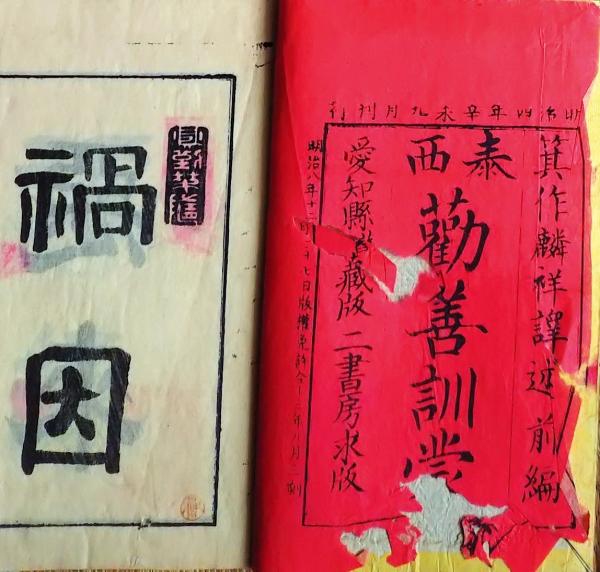 明治四年辛未九月刊行
箕作麟祥譯述前編
泰西
勸善訓蒙
愛知縣 藏版 二書房求版
明治八年十二月二十七日版權免許仝十
禍因